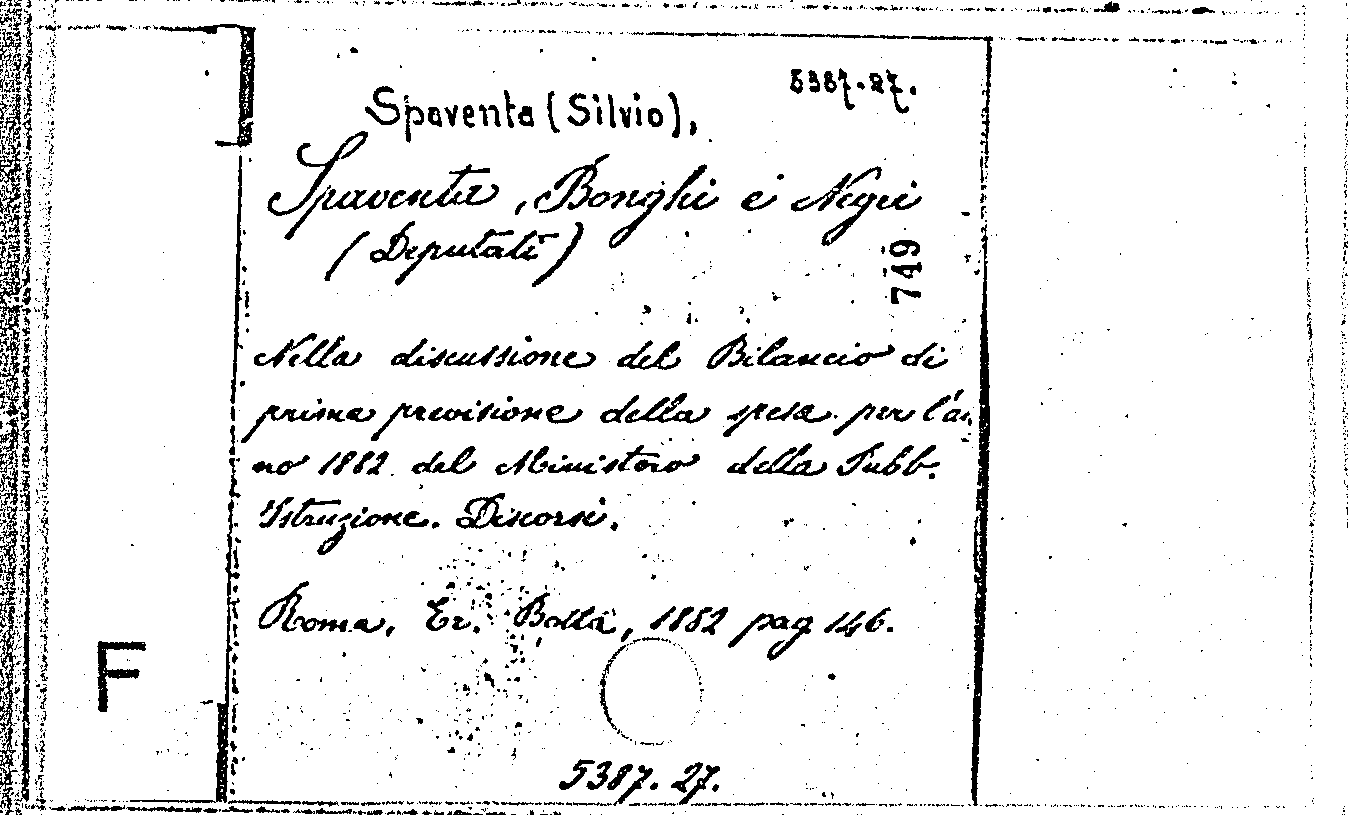 5387.27.
Spaventa (Silvio),
Spaventa, Bonghi e Negri
(Deputati)
749
Nella discussione del Bilancio di
prima previsione della spesa per l'an
no 1882 del Ministero della Pubb.
Istruzione. Discorsi.
Roma, Er. Botta, 1882 pag 146.
F
5387.27.